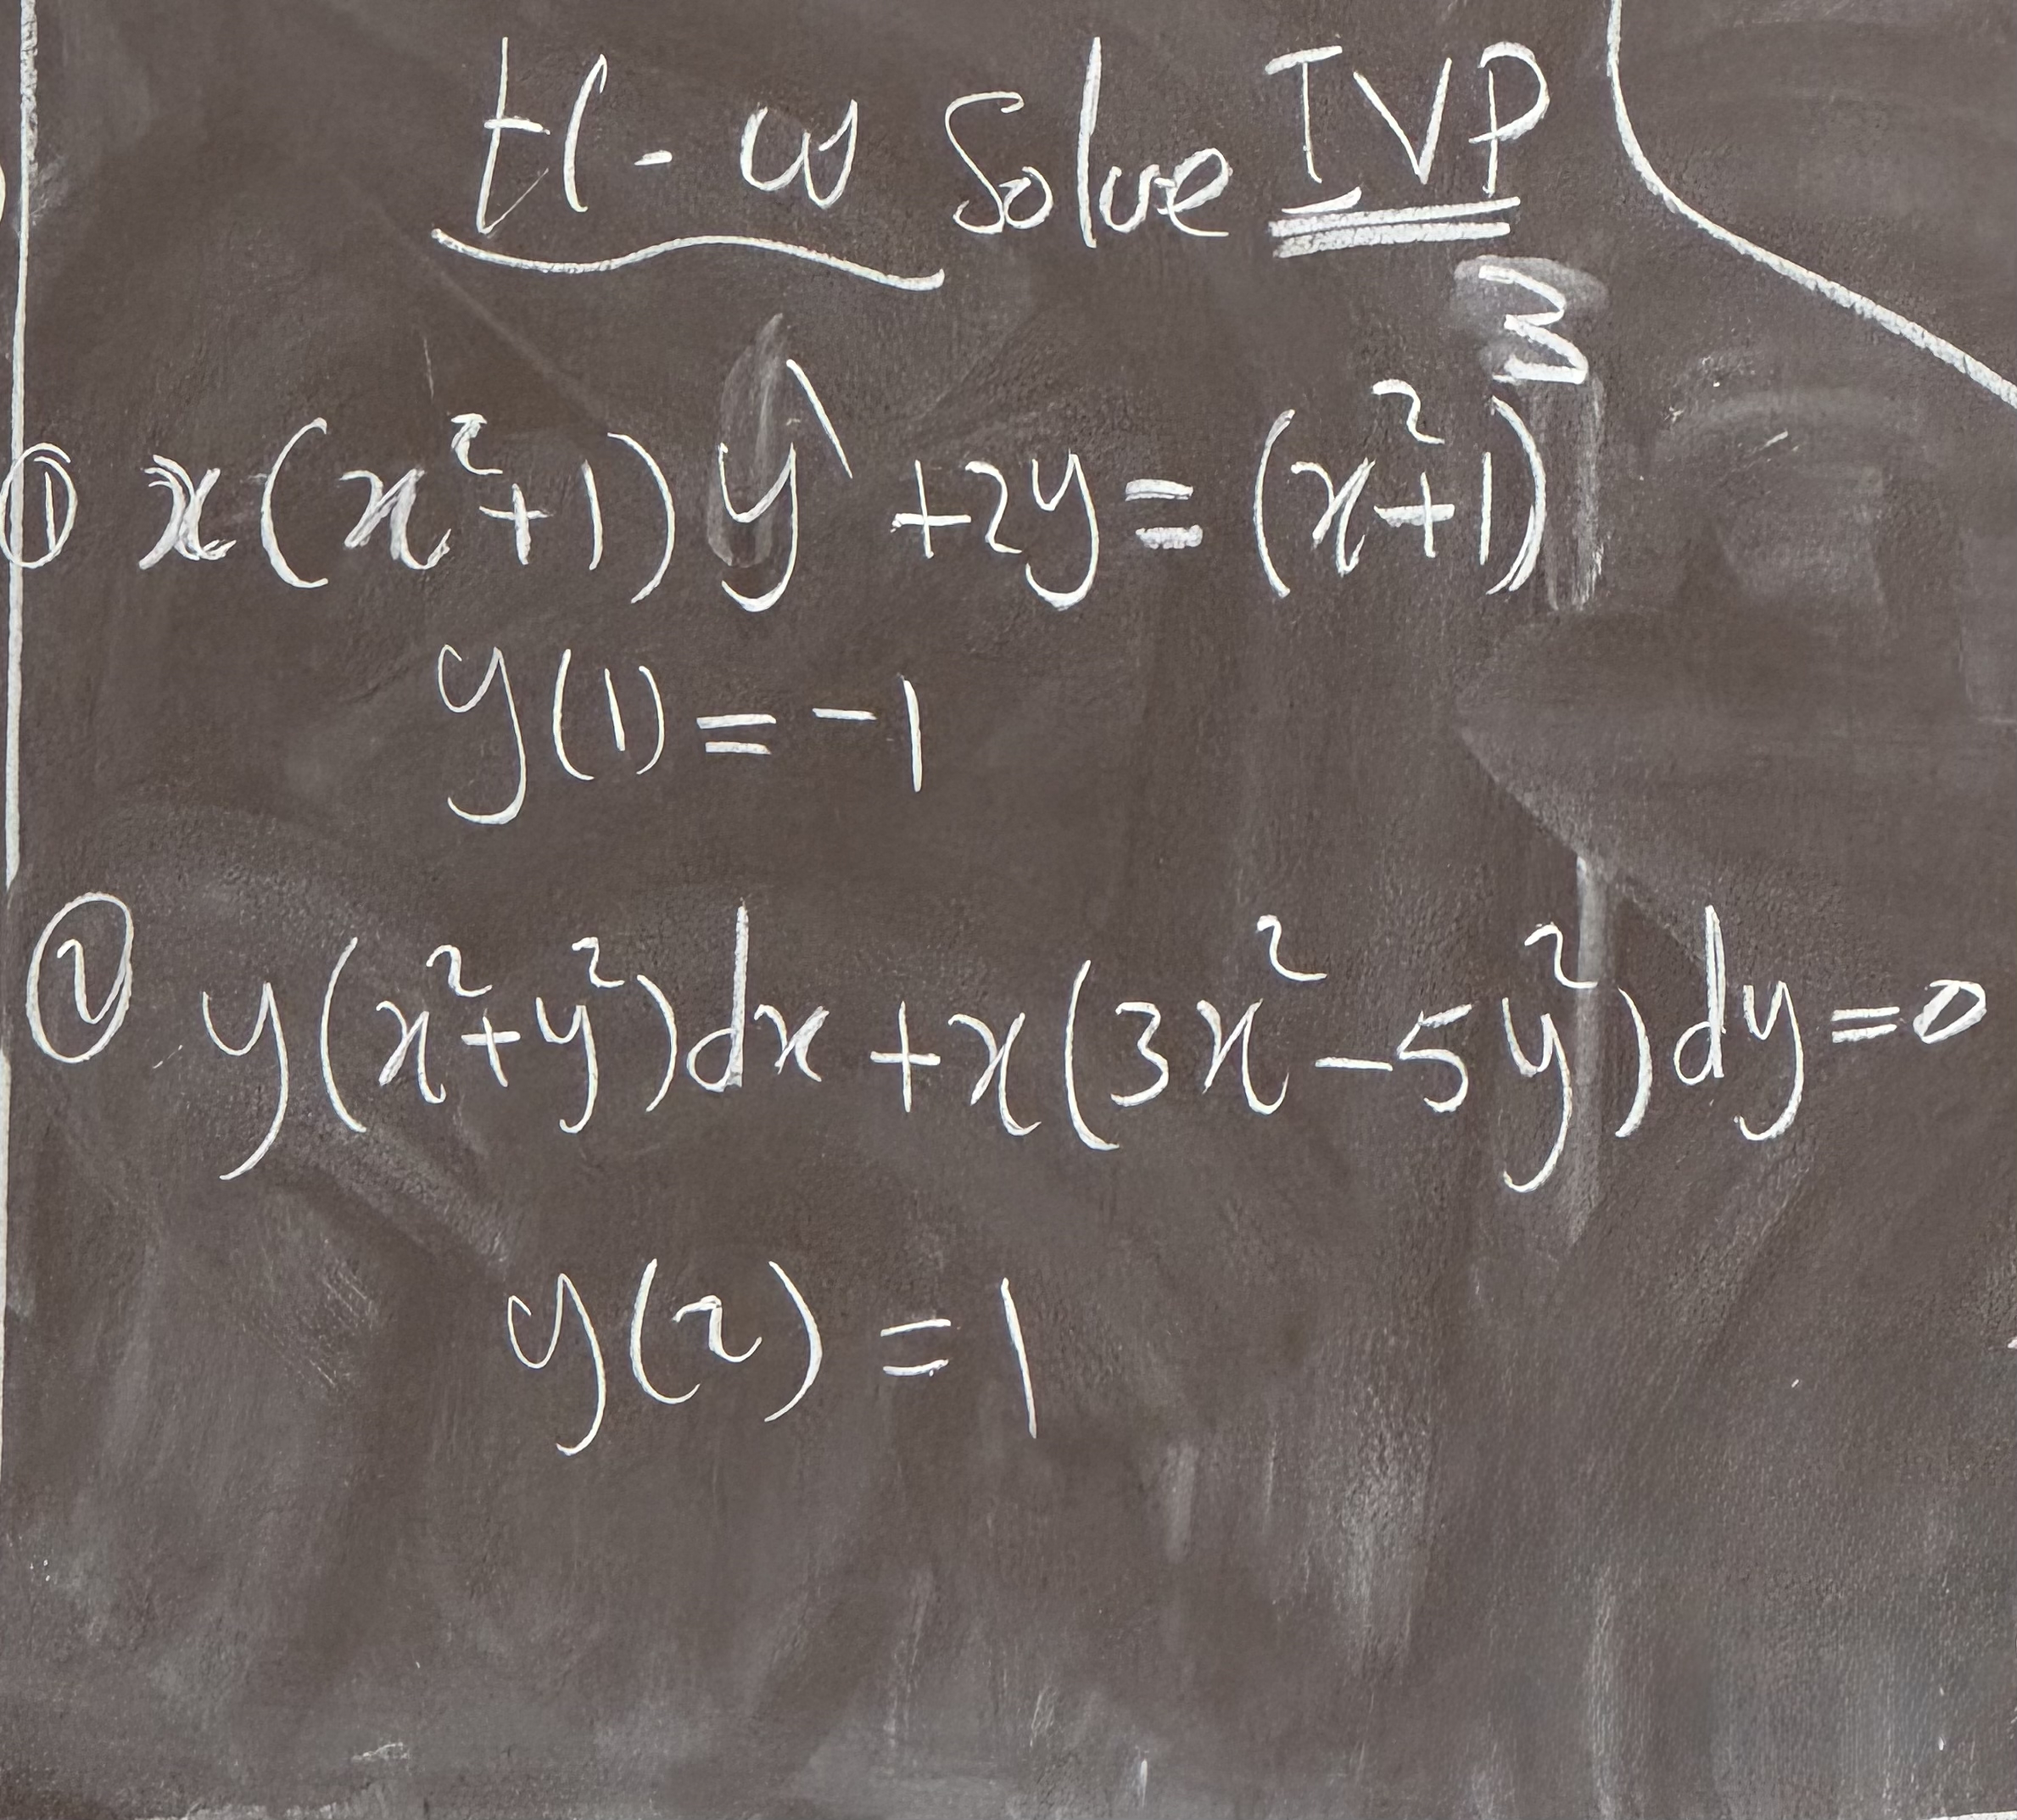 H-W Solve IVP
① x(x²+1)y' + 2y = (x²+1)³
y(1) = -1
② y(x²+y²)dx + x(3x²-5y²)dy=0
y(2) = 1